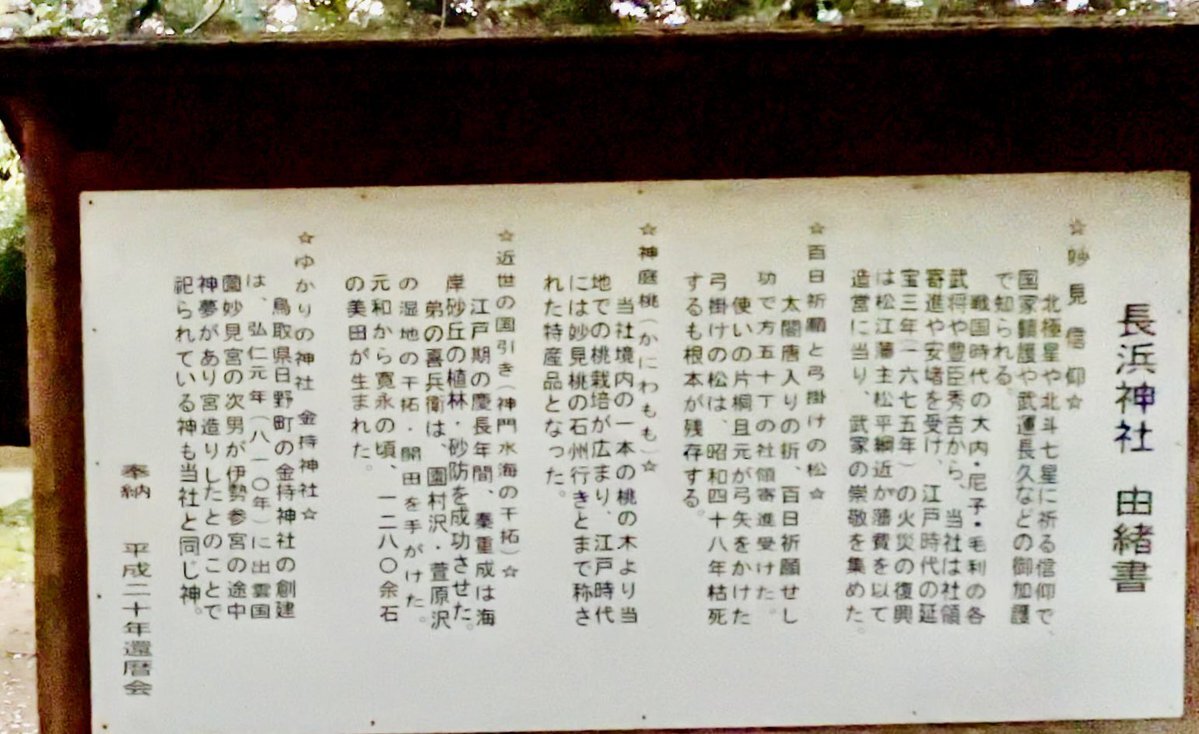 長浜神社 由緒書
☆妙見信仰☆
北極星や北斗七星に祈る信仰で、
国家鎮護や武運長久などの御加護
で知られる。
戦国時代の大内・尼子・毛利の各
武将や豊臣秀吉から、当社は社領
寄進や安堵を受け、江戸時代の延
宝三年(一六七五年)の火災の復興
は松江藩主松平綱近が藩費を以て
造営に当り、武家の崇敬を集めた。
☆百日祈願と弓掛けの松☆
太閤唐入りの折、百日祈願せし
功で方五十丁の社領寄進受けた。
使いの片桐且元が弓矢をかけた
弓掛けの松は、昭和四十八年枯死
するも根本が残存する。
☆神庭桃(かにわもも)☆
当社境内の一本の桃の木より当
地での桃栽培が広まり、江戸時代
には妙見桃の石州行きとまで称さ
れた特産品となった。
☆近世の国引き(神門水海の干拓)☆
江戸期の慶長年間、秦重成は海
岸砂丘の植林・砂防を成功させた。
弟の喜兵衛は、園村沢・萱原沢
の湿地の干拓・開田を手がけた。
元和から寛永の頃、一二八〇余石
の美田が生まれた。
☆ゆかりの神社 金持神社☆
鳥取県日野町の金持神社の創建
は、弘仁元年(八一〇年)に出雲国
薗妙見宮の次男が伊勢参宮の途中
神夢があり宮造りしたとのことで
祀られている神も当社と同じ神。
奉納 平成二十年還暦会